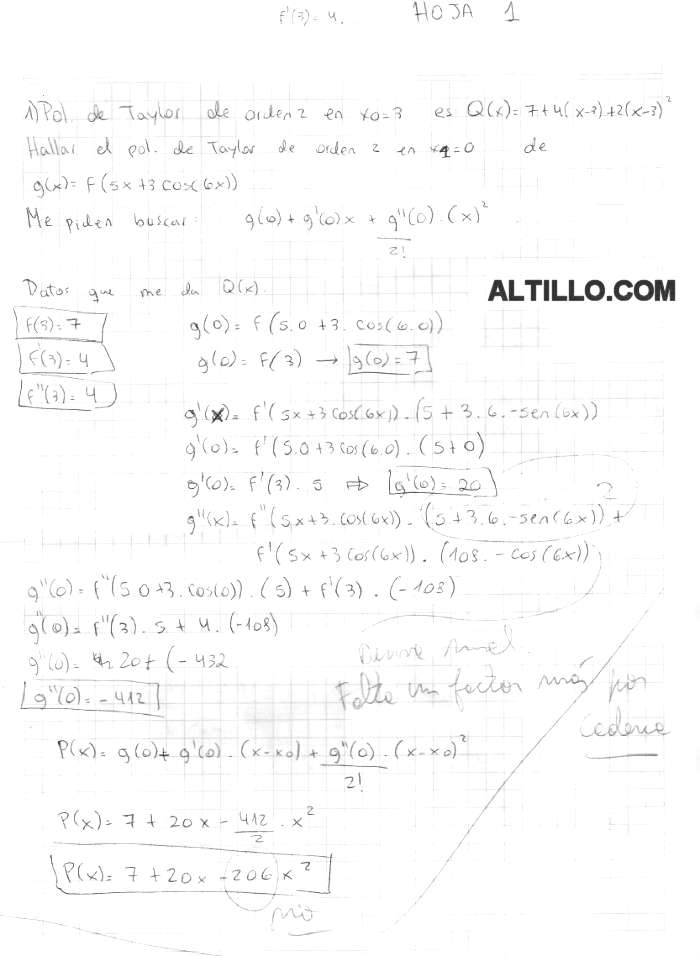 f'(3)=4. HOJA 1
1) Pol. de Taylor de orden 2 en x0=3 es Q(x)=7+4(x-3)+2(x-3)²
Hallar el pol. de Taylor de orden 2 en x1=0 de
g(x)= f(5x+3cos(6x))
Me piden buscar: g(0) + g'(0)x + g''(0)/2! . (x)²
Datos que me da Q(x).
ALTILLO.COM
f(3)=7
g(0) = f(5.0+3.cos(6.0))
f'(3)=4
g(0)= f(3) → g(0)=7
f''(3)=4
g'(x)= f'(5x+3cos(6x)).(5+3.6.-sen(6x))
g'(0)= f'(5.0+3cos(6.0).(5+0)
g'(0)= f'(3).5 ⇒ g'(0)=20
?
g''(x)= f''(5x+3.cos(6x)).(5+3.6.-sen(6x)) +
f'(5x+3cos(6x)).(108.-cos(6x))
g''(0)= f''(5.0+3.cos(0)).(5)+f'(3).(-108)
g''(0)= f''(3).5+4.(-108)
g''(0)= 20+(-432
g''(0)=-412
Falta un factor más por
Cadena
P(x)= g(0)+g'(0).(x-x0)+g''(0)/2!.(x-x0)²
P(x)=7+20x-412/2.x²
P(x)=7+20x-206x²
no